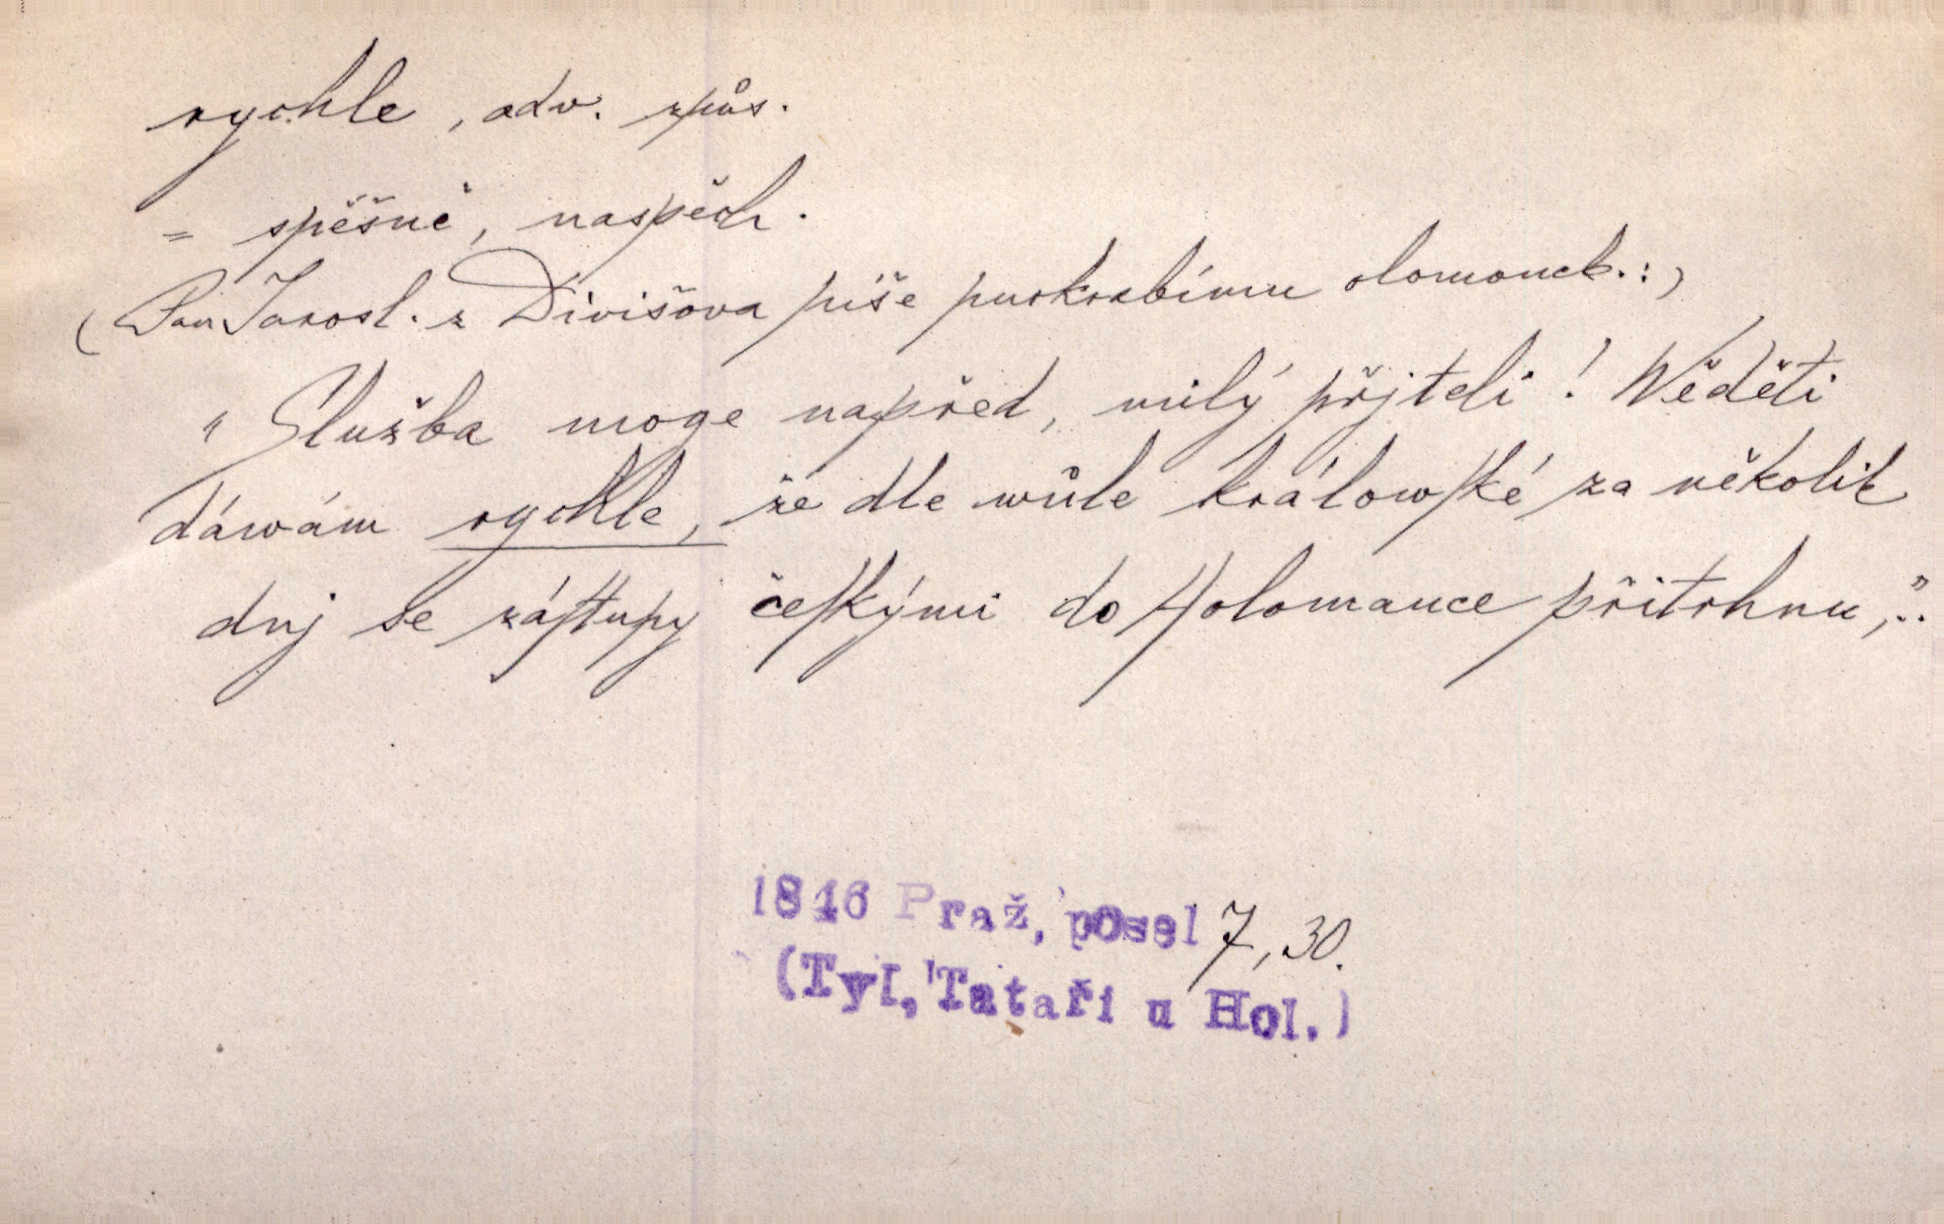 rychle, adv. způs.
= spěšně, naspěch.
(Pan Jarosl. z Divišova píše purkrabímu olomouck.:)
"Služba moge napřed, milý přjteli! Wěděti
dáwám rychle, že dle wůle králowſké za několik
dnj se záſtupy čeſkými do Holomauce přitrhnu,"..
1846 Praž, posel 7, 30.
(Tyl, Tataři u Hol.)